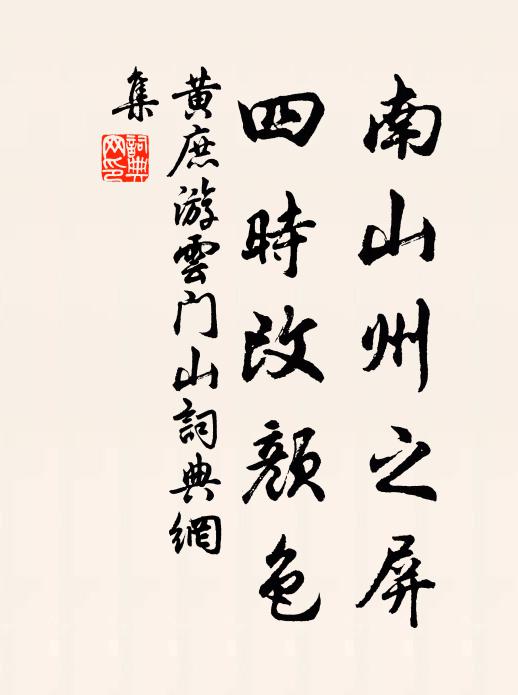 南山州之屏
四時改顏色
黄庶游雲門山詞典網
集
詞典
网印